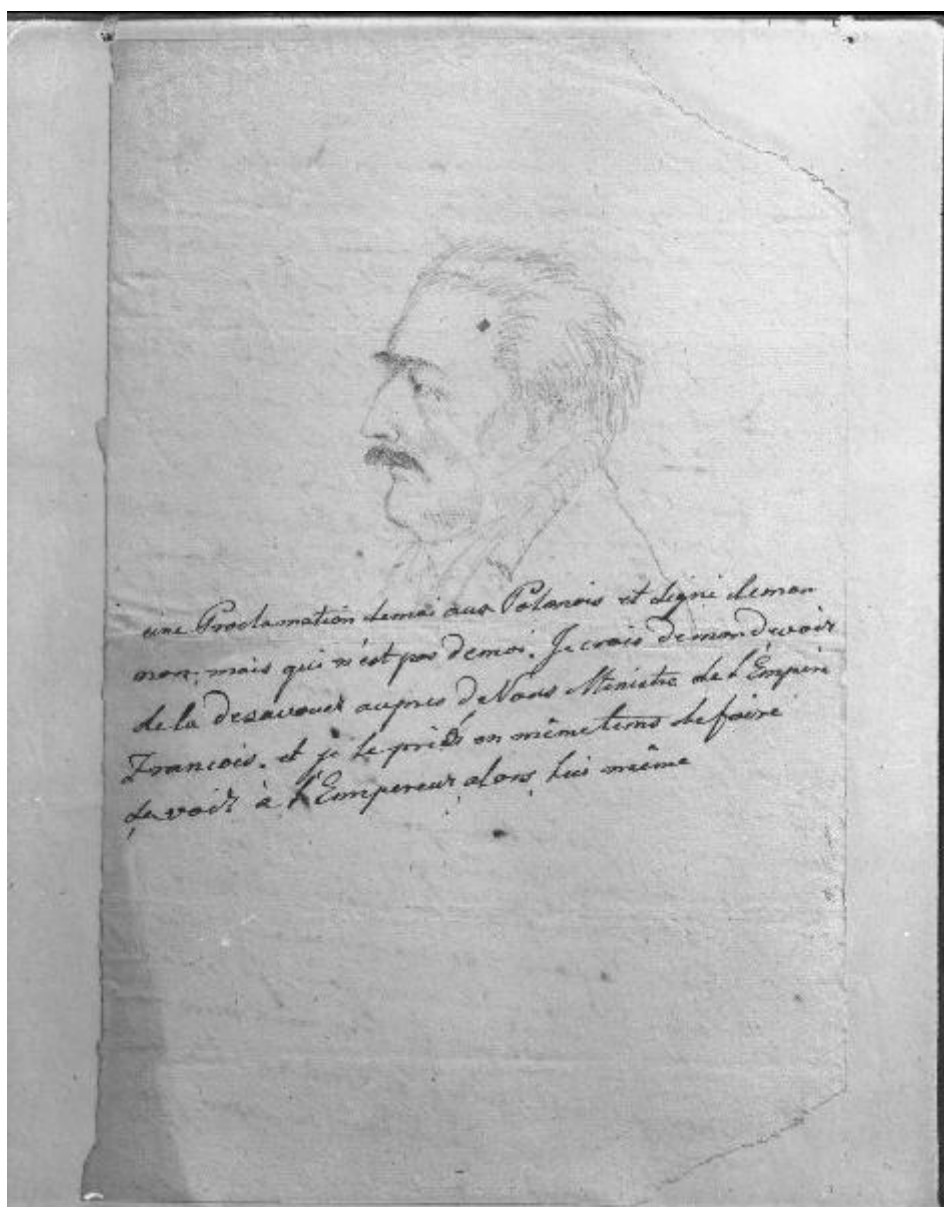 une Proclamation de moi aux Polonois et signé de mon
nom, mais qui n'est pas de moi. Je crois de mon devoir
de la desavouer aupres de Vous Ministre de l'Empire
Francois. et je le priés en même tems de faire
savoir à l'Empereur alors lui même